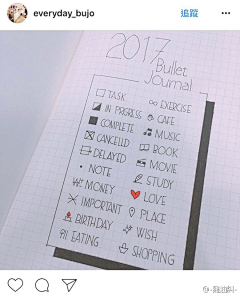 everyday_bujo
追蹤
2017
Bullet
Journal
TASK
IN PRGRESS
COMPLETE
CANCELLD
DELAYED
NOTE
MONEY
IMPORTANT
BIRTHDAY
EATING
EXERCISE
CAFE
MUSIC
BOOK
MOVIE
STUDY
LOVE
PLACE
WISH
SHOPPING